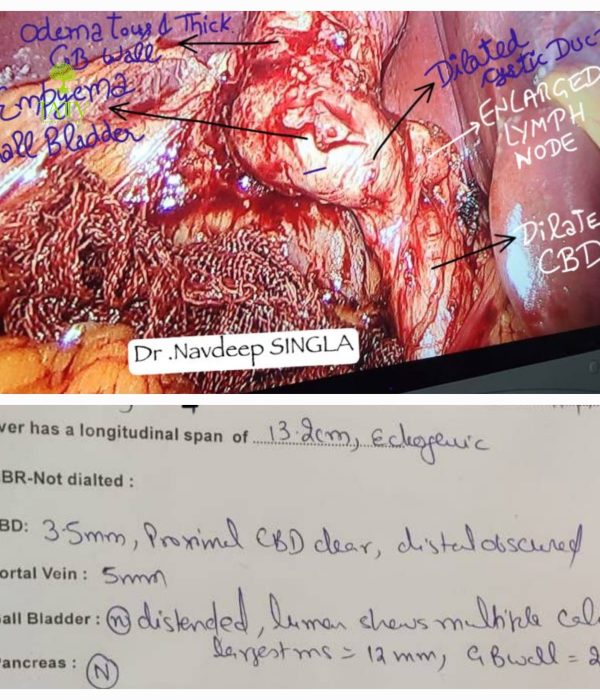 Odematous & Thick
GB Wall
Empyema
all Bladder
Dilated
Cystic Duct
ENLARGED
LYMPH
NODE
Dilate
CBD
Dr .Navdeep SINGLA
ver has a longitudinal span of 13.2cm, Echogenic
BR-Not dialted :
BD: 3.5mm, Proximal CBD clear, distal obscured
ortal Vein : 5mm
all Bladder : (n) distended, lumen shows multiple cal
largest ms = 12 mm, GBwall = 2
ancreas : (N)